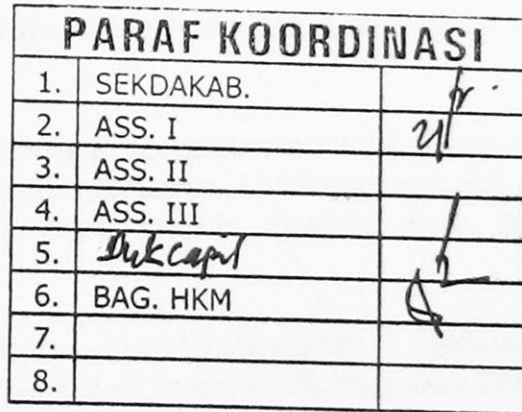 PARAF KOORDINASI
1. SEKDAKAB.
2. ASS. I
3. ASS. II
4. ASS. III
5. Dukcapil
6. BAG. HKM
7.
8.